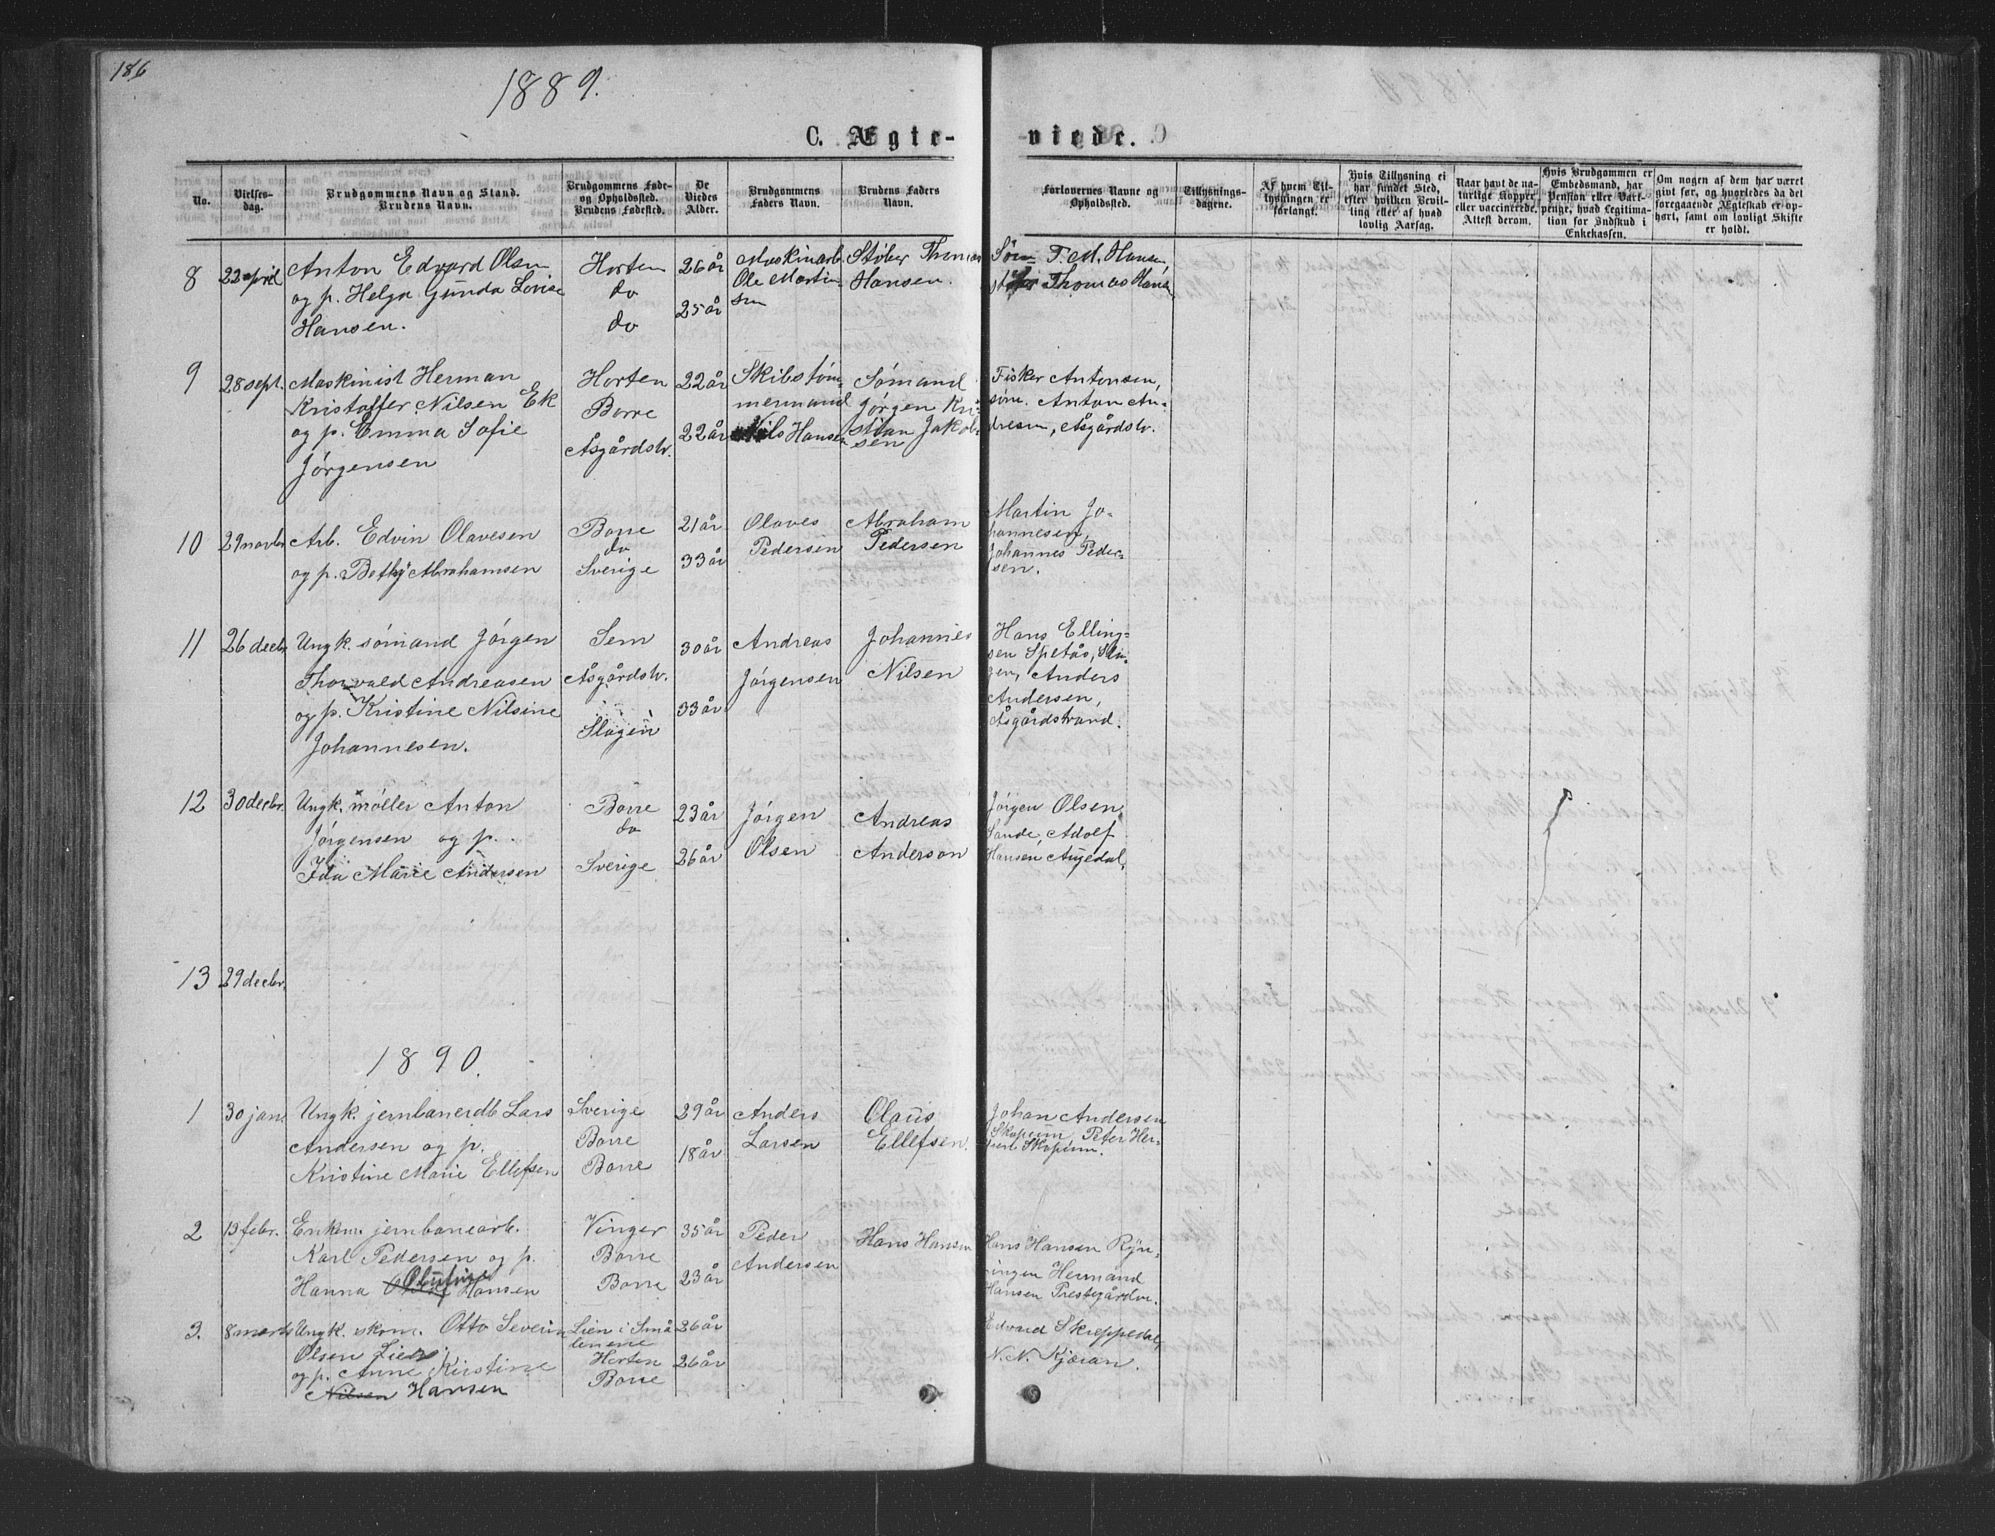 186
1889.
C. Ægte-
viede.
No.
Vielses-
dag.
Brudgommens Navn og Stand.
Brudens Navn.
Brudgommens Føde-
og Opholdssted.
Brudens Fødested.
De
Viedes
Alder.
Brudgommens
Faders Navn.
Brudens Faders
Navn.
Forlovernes Navne og
Opholdssted.
Tillysnings-
dagene.
Af hvem Til-
lysningen er
forlangt.
Hvis Tillysning ei
har fundet Sted,
efter hvilken Bevil-
ling eller af hvad
lovlig Aarsag.
Naar havt de na-
turlige Kopper
eller vaccinerede.
Attest derom.
Hvis Brudgommen er
Embedsmand, har
Pension eller Vart-
penge, hvad Legitima-
tion for Indskud i
Enkekassen.
Om nogen af dem har været
gift før, og hvorledes da det
foregaaende Ægteskab er op-
hørt, samt om lovligt Skifte
er holdt.
8
22 april
Anton Edvard Olsen
og p. Helga Gunda Lovise
Hansen.
Horten
do
do
26 år
25 år
Maskinarb.
Ole Martin-
sen
Støber Thomas
Hansen.
Søm. F. M. Hansen,
Thomas Hans
9
28 sept.
Maskinist Herman
Kristoffer Nilsen Ek
og p. Emma Sofie
Jørgensen
Horten
Borre
Åsgårdstr.
22 år
22 år
Skibstøm-
mermand
Nils Hansen
Sømand
Jørgen Kri-
stian Jakob-
sen
Fisker Antonsen,
søm. Anton An-
dresen, Åsgårdstr.
10
29 novbr
Arb. Edvin Olavesen
og p. Bethy Abrahamsen
Borre
do
Sverige
21 år
33 år
Olaves
Pedersen
Abraham
Pedersen
Martin Jo-
hannesen,
Johannes Peder-
sen.
11
26 decbr
Ungk. sømand Jørgen
Thorvald Andreasen
og p. Kristine Nilsine
Johannesen.
Sem
Åsgårdstr.
Slagen
30 år
33 år
Andreas
Jørgensen
Johannes
Nilsen
Hans Elling-
sen Spetås, Sla-
gen, Anders
Andersen,
Åsgårdstrand.
12
30 decbr.
Ungk. møller Anton
Jørgensen og p.
Ida Marie Andersen
Borre
do
Sverige
23 år
26 år
Jørgen
Olsen
Andreas
Anderson
Jørgen Olsen
Sande, Adolf
Hansen Augedal,
13
29 decbr.
1890.
1
30 jan.
Ungk. jernbanerdb Lars
Andersen og p.
Kristine Marie Ellefsen
Sverige
Borre
Borre
29 år
18 år
Anders
Larsen
Olaus
Ellefsen.
Johan Andersen
Skopum, Peter Her-
Skopum.
2
19 febr.
Enkem. jernbanearb.
Karl Pedersen og p.
Hanna Olufine Hansen
Vinger
Borre
Borre
35 år
23 år
Peder
Andersen
Hans Hansen
Hans Hansen Ryn-
ningen Hermand
Hansen Prestegårdse.
3.
8 marts
Ungk. skom. Otto Severin
Olsen Lien
og p. Anne Kristine
Nilsen Hansen
Lien i Små
lenene
Horten
Borre
26 år
26 år
Edvard Skeppedal,
N. N. Kjæran.